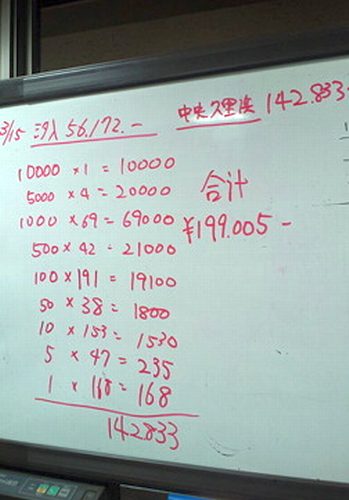 3/15 56.172.-
中央久里浜 142.833-
10000 × 1 = 10000
5000 × 4 = 20000
1000 × 69 = 69000
500 × 42 = 21000
100 × 191 = 19100
50 × 38 = 1800
10 × 153 = 1530
5 × 47 = 235
1 × 168 = 168
142833
合計
¥199.005-